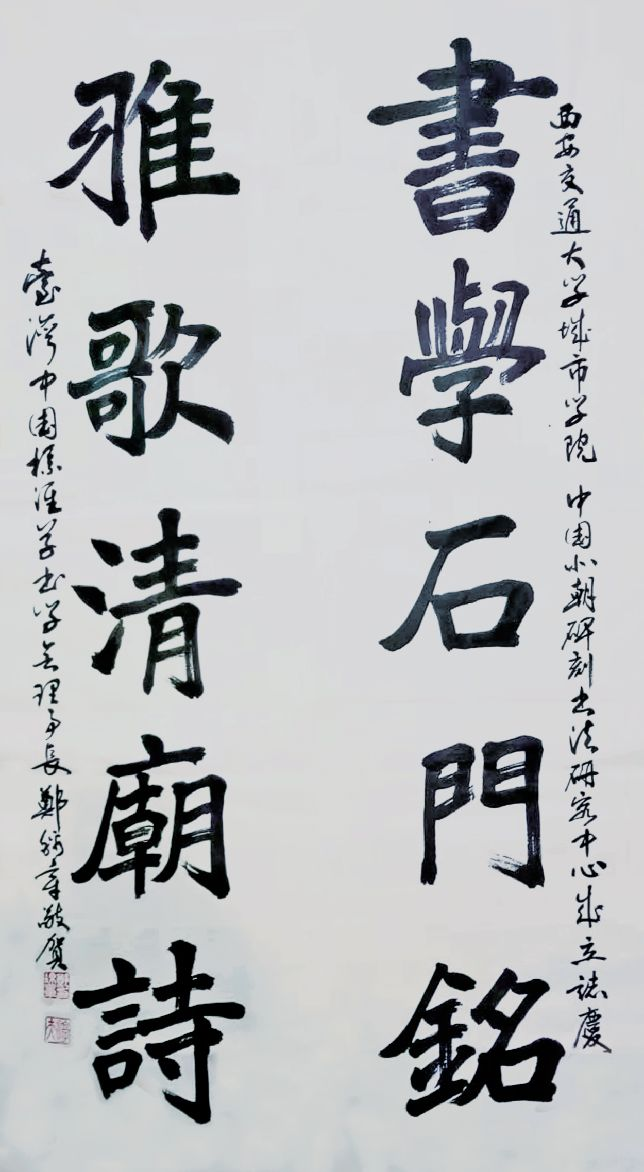 西安交通大学城市学院 中国北朝碑刻书法研究中心成立誌慶
書學石門銘
雅歌清廟詩
臺灣中国標准草书学会理事長鄭錦章敬賀